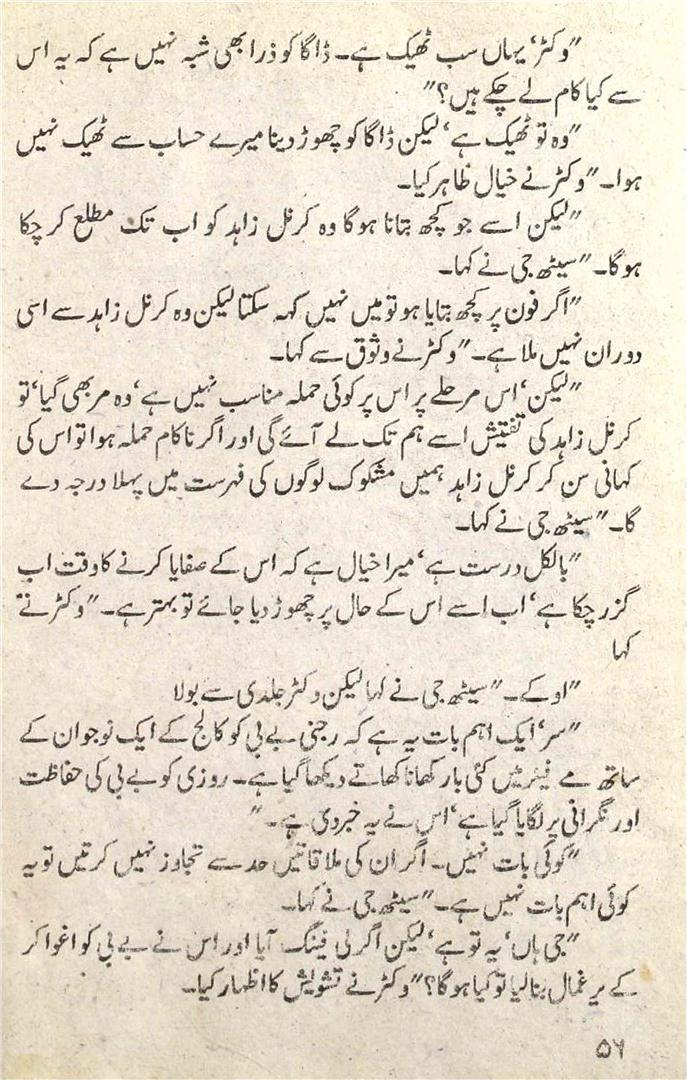 "وکٹر' یہاں سب ٹھیک ہے۔ ڈاگا کو ذرا بھی شبہ نہیں ہے کہ یہ اس
سے کیا کام لے چکے ہیں؟"
"وہ تو ٹھیک ہے' لیکن ڈاگا کو چھوڑ دینا میرے حساب سے ٹھیک نہیں
ہوا۔" وکٹر نے خیال ظاہر کیا۔
"لیکن اسے جو کچھ بتانا ہوگا وہ کرنل زاہد کو اب تک مطلع کر چکا
ہوگا۔" سیٹھ جی نے کہا۔
"اگر فون پر کچھ بتایا ہو تو میں نہیں کہہ سکتا لیکن وہ کرنل زاہد سے اسی
دوران نہیں ملا ہے۔" وکٹر نے وثوق سے کہا۔
"لیکن' اس مرحلے پر اس پر کوئی حملہ مناسب نہیں ہے' وہ مر بھی گیا' تو
کرنل زاہد کی تفتیش اسے ہم تک لے آئے گی اور اگر ناکام حملہ ہوا تو اس کی
کہانی سن کر کرنل زاہد ہمیں مشکوک لوگوں کی فہرست میں پہلا درجہ دے
گا۔" سیٹھ جی نے کہا۔
"بالکل درست ہے' میرا خیال ہے کہ اس کے صفایا کرنے کا وقت اب
گزر چکا ہے' اب اسے اس کے حال پر چھوڑ دیا جائے تو بہتر ہے۔" وکٹر نے
کہا
"اوکے۔" سیٹھ جی نے کہا لیکن وکٹر جلدی سے بولا
"سر' ایک اہم بات یہ ہے کہ رجنی بے بی کو کالج کے ایک نوجوان کے
ساتھ مے فیئر میں کئی بار کھانا کھاتے دیکھا گیا ہے۔ روزی کو بے بی کی حفاظت
اور نگرانی پر لگایا گیا ہے' اس نے یہ خبر دی ہے۔"
"کوئی بات نہیں۔ اگر ان کی ملاقاتیں حد سے تجاوز نہیں کرتیں تو یہ
کوئی اہم بات نہیں ہے۔" سیٹھ جی نے کہا۔
"جی ہاں' یہ تو ہے' لیکن اگر لی فینگ آیا اور اس نے بے بی کو اغوا کر
کے یرغمال بنا لیا تو کیا ہوگا؟" وکٹر نے تشویش کا اظہار کیا۔
۵۶